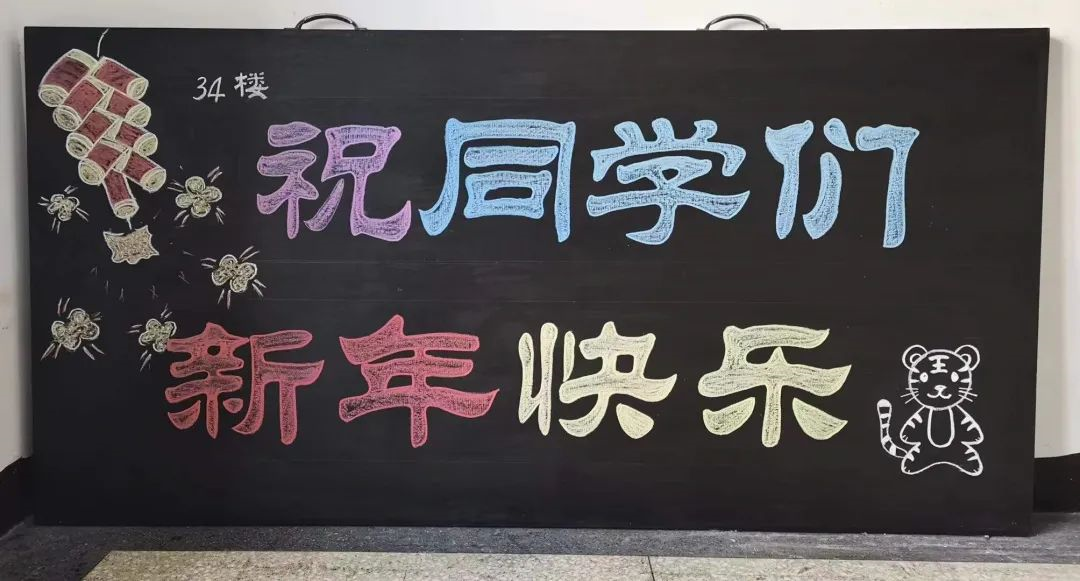 34 楼
祝同学们
新年快乐
王